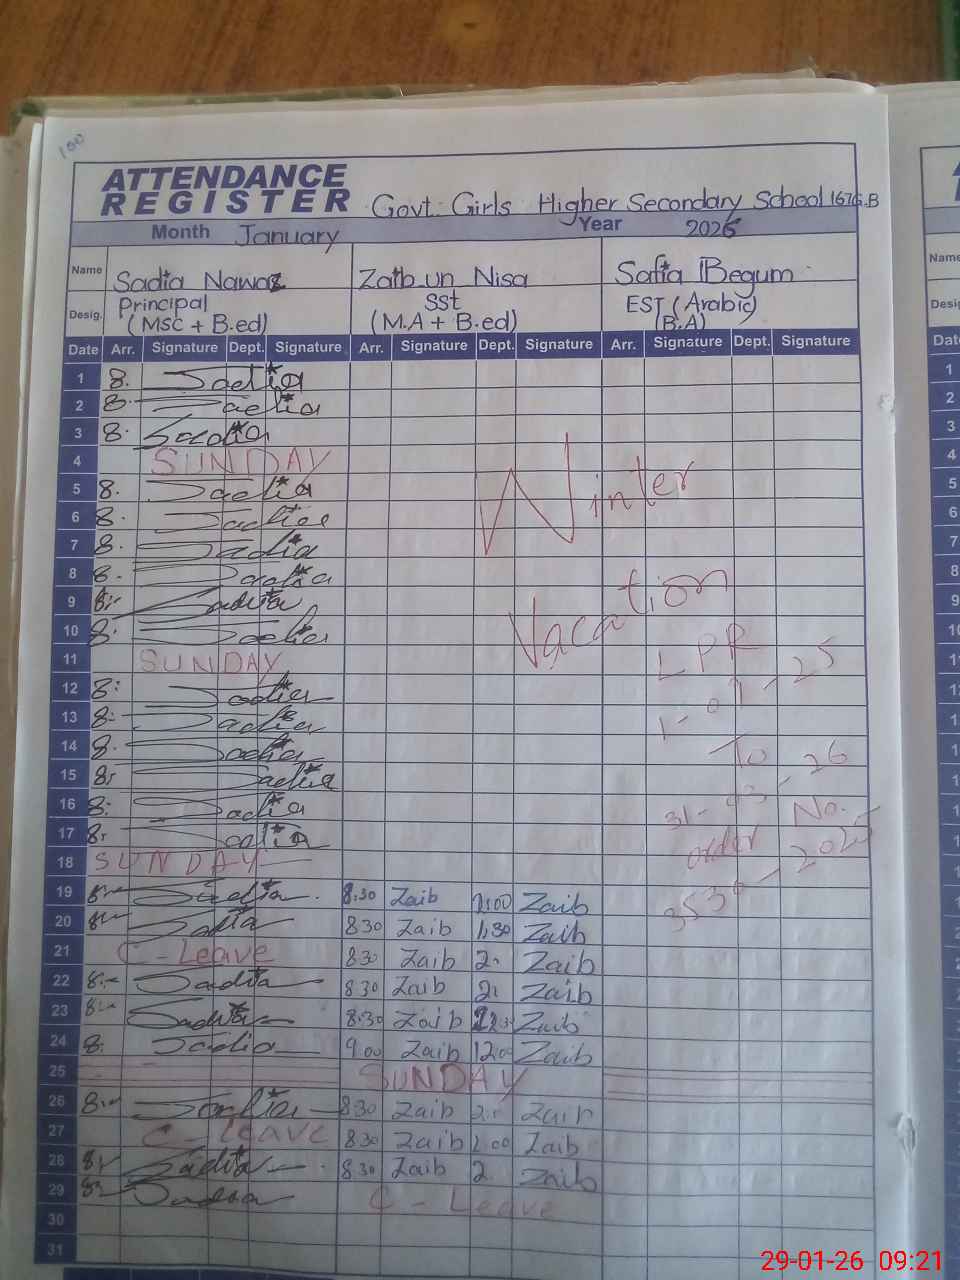 100
ATTENDANCE
REGISTER Govt. Girls Higher Secondary School 167G.B
Month January Year 2026
Name Sadia Nawaz Zaib un Nisa Safia Begum
Desig. Principal SSt EST (Arabic)
(MSc + B.ed) (M.A + B.ed) (B.A)
Date Arr. Signature Dept. Signature Arr. Signature Dept. Signature Arr. Signature Dept. Signature
1 8. Sadia
2 8. Sadia
3 8. Sadia
4 SUNDAY
5 8. Sadia
6 8. Sadia
7 8. Sadia
8 8. Sadia
9 8:- Sadia
10 8: Sadia
11 SUNDAY
12 8: Sadia
13 8: Sadia
14 8. Sadia
15 8: Sadia
16 8: Sadia
17 8: Sadia
18 SUNDAY
Winter
Vacation
LPR
1-07-25
To
31-03-26
order No.
3530-2025
19 8:- Sadia 8:30 Zaib 2:00 Zaib
20 8:- Sadia 8 30 Zaib 1:30 Zaib
21 C - Leave 8 30 Zaib 2. Zaib
22 8:- Sadia 8 30 Zaib 2. Zaib
23 8:- Sadia 8.30 Zaib Zaib
24 8. Sadia 9.00 Zaib 12.00 Zaib
25 SUNDAY
26 8:- Sadia 8 30 Zaib Zaib
27 C - Leave 8 30 Zaib 2.00 Zaib
28 8: Sadia 8 30 Zaib 2. Zaib
29 8: Sadia C - Leave
30
31
Name
Desig
Date
1
2
3
4
5
6
7
8
9
10
29-01-26 09:21